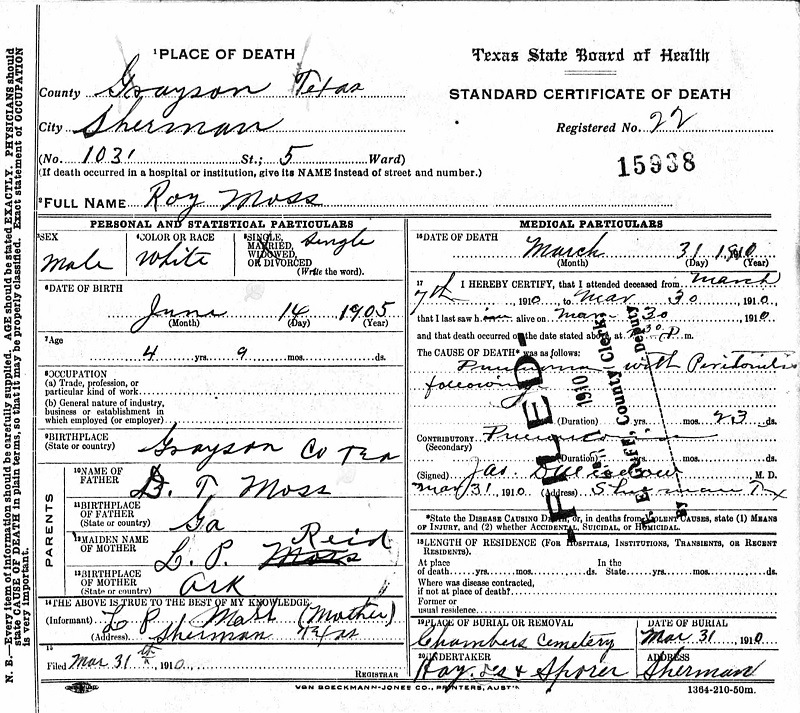 N. B.—Every item of information should be carefully supplied. AGE should be stated EXACTLY. PHYSICIANS should
state CAUSE OF DEATH in plain terms, so that it may be properly classified. Exact statement of OCCUPATION
is very important.
1PLACE OF DEATH
Texas State Board of Health
County Grayson Texas
STANDARD CERTIFICATE OF DEATH
City Sherman
Registered No. 22
(No. 1031 St.; 5 Ward)
15938
(If death occurred in a hospital or institution, give its NAME instead of street and number.)
2FULL NAME Roy Moss
PERSONAL AND STATISTICAL PARTICULARS
3SEX
Male
4COLOR OR RACE
White
5SINGLE, Single
MARRIED,
WIDOWED,
OR DIVORCED
(Write the word).
6DATE OF BIRTH
June 14 1905
(Month) (Day) (Year)
7Age
4 yrs. 9 mos. ds.
8OCCUPATION
(a) Trade, profession, or
particular kind of work
(b) General nature of industry,
business or establishment in
which employed (or employer)
9BIRTHPLACE
(State or country) Grayson Co
PARENTS
10NAME OF
FATHER D. T. Moss
11BIRTHPLACE
OF FATHER
(State or country) Ga
12MAIDEN NAME
OF MOTHER L. P. Moss Reid
13BIRTHPLACE
OF MOTHER
(State or country) Ark
14THE ABOVE IS TRUE TO THE BEST OF MY KNOWLEDGE
(Informant) L P Moss (Mother)
(Address) Sherman Texas
15
Filed Mar 31th, 1910
REGISTRAR
MEDICAL PARTICULARS
16DATE OF DEATH
March 31 1910
(Month) (Day) (Year)
17 I HEREBY CERTIFY, that I attended deceased from March
7th, 1910, to Mar 30, 1910,
that I last saw him alive on Mar 30, 1910
and that death occurred on the date stated above, at 30 P. m.
The CAUSE OF DEATH* was as follows:
with Peritonitis
following
(Duration) yrs. mos. 23 ds.
CONTRIBUTORY
(Secondary)
(Duration) yrs. mos. ds.
(Signed) Jas. M. D.
Mar 31, 1910 (Address) Sherman Tx
*State the DISEASE CAUSING DEATH, or, in deaths from VIOLENT CAUSES, state (1) MEANS
OF INJURY, and (2) whether ACCIDENTAL, SUICIDAL, or HOMICIDAL.
18LENGTH OF RESIDENCE (FOR HOSPITALS, INSTITUTIONS, TRANSIENTS, OR RECENT
RESIDENTS).
At place In the
of death yrs. mos. ds. State yrs. mos. ds.
Where was disease contracted,
if not at place of death?
Former or
usual residence
19PLACE OF BURIAL OR REMOVAL
Chambers Cemetery
DATE OF BURIAL
Mar 31, 1910
20UNDERTAKER
& Sporer
ADDRESS
Sherman
-FILED-
1910
County Clerk,
By Deputy
VON BOECKMANN-JONES CO., PRINTERS, AUSTIN
1364-210-50m.